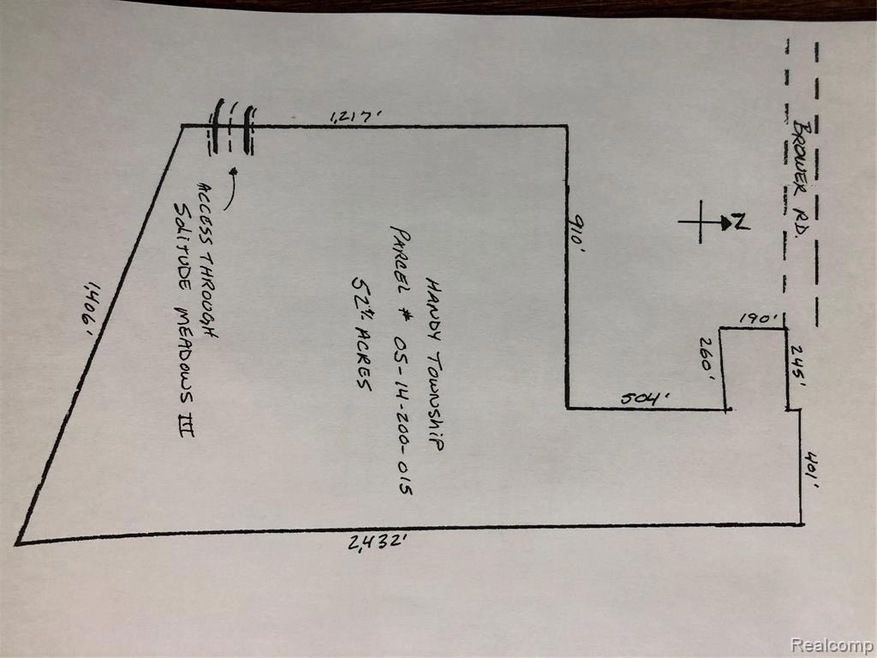 BROWER RD.
N
1,217'
910'
190'
245'
260'
504'
401'
HANDY TOWNSHIP
PARCEL # 05-14-200-015
ACRES
ACCESS THROUGH
SOLITUDE MEADOWS III
1,406'
2,432'
Realcomp